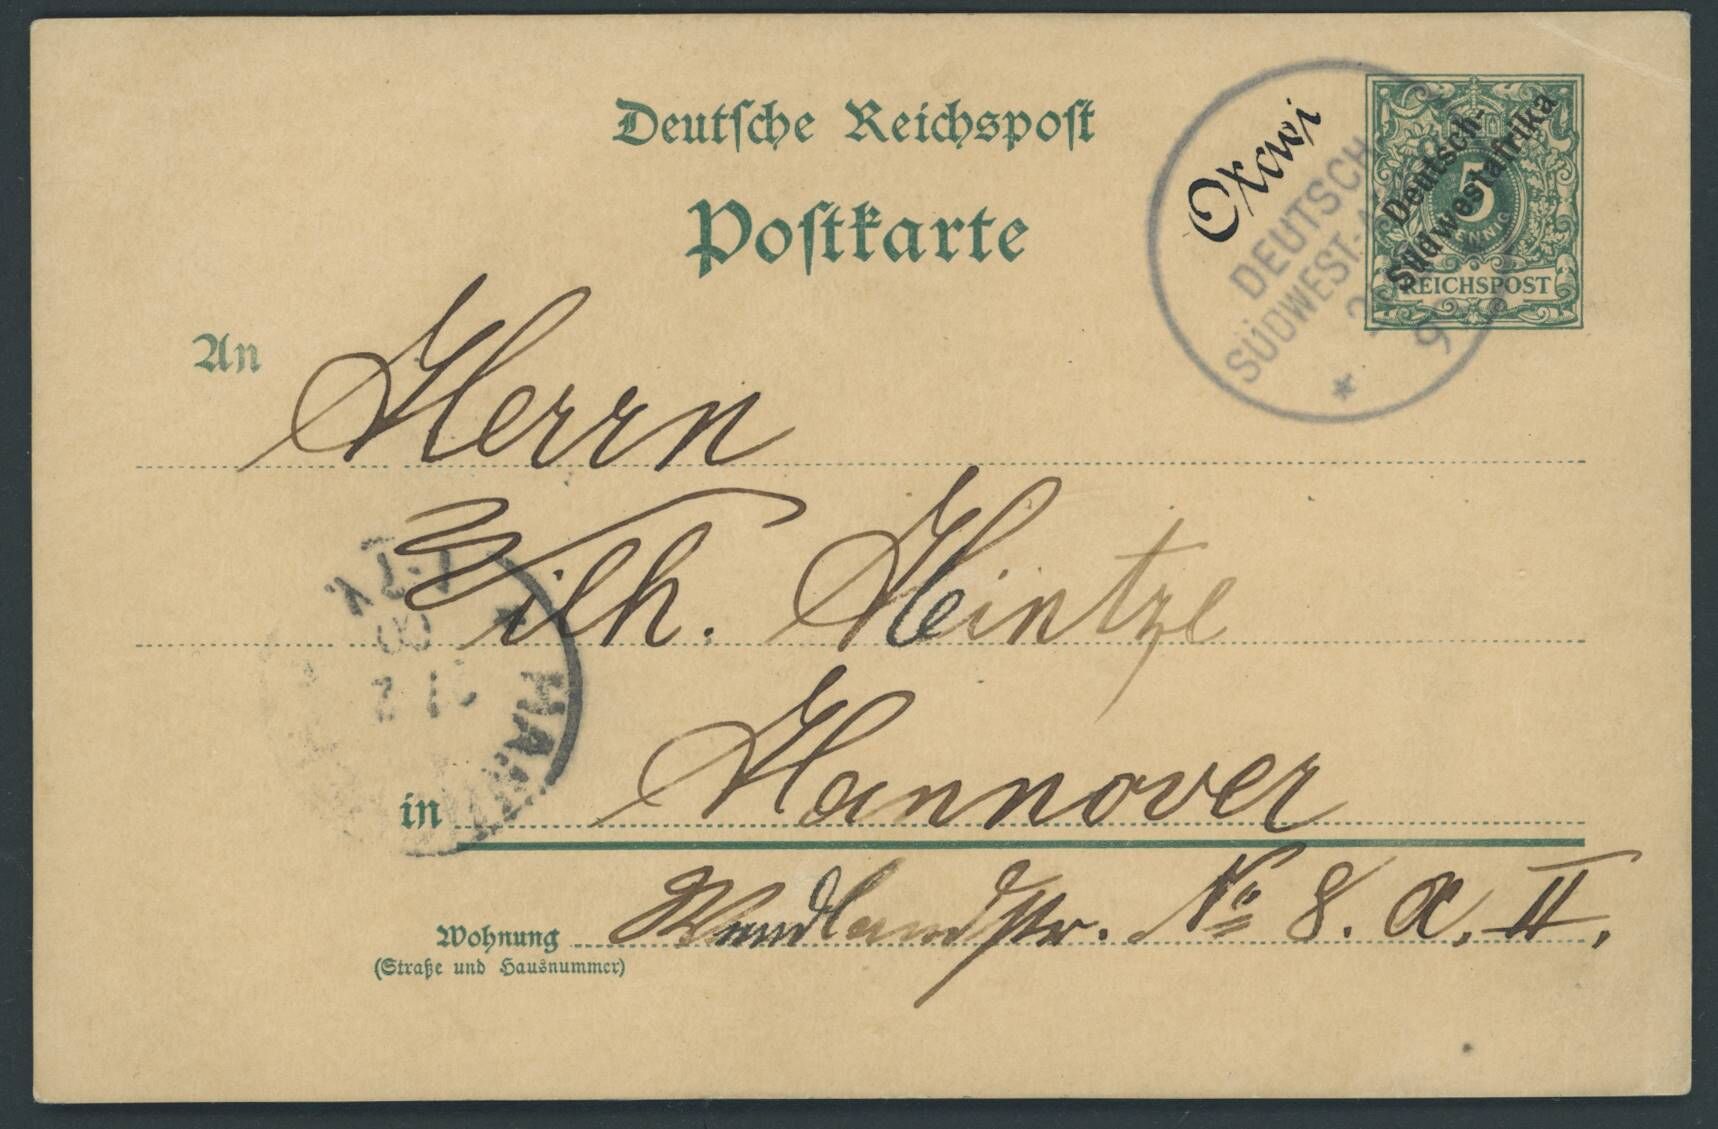 Deutsche Reichspost
Postkarte
Oxowi
DEUTSCH
SÜDWEST-A
9
Deutsch-
Südwestafrika
5
REICHSPOST
An
Herrn
Wilh. Heintze
in Hannover
Wohnung Wendlandstr. No 8. A. II.
(Straße und Hausnummer)
HAN
1-2 V
00